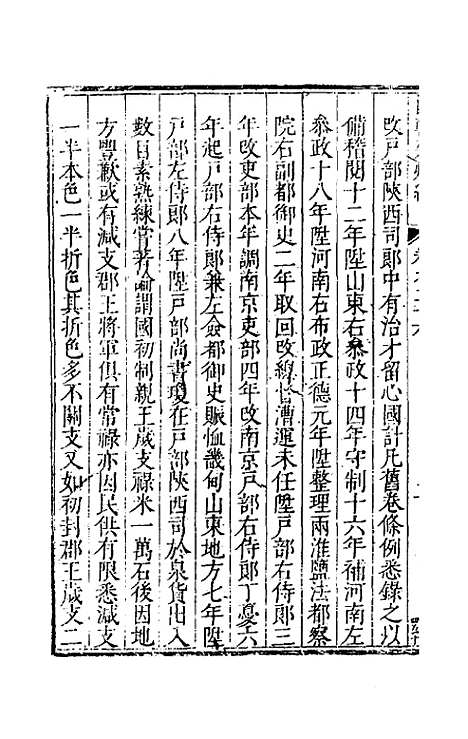 改戸部陝西司郎中有治才留心國計凡舊卷條例悉錄之以
備稽閱十二年陞山東右叅政十四年守制十六年補河南左
叅政十八年陞河南右布政正德元年陞整理兩淮鹽法都察
院右副都御史二年取回改總督漕運未任陞戸部右侍郎三
年改吏部本年調南京吏部四年改南京戸部右侍郎丁憂六
年起戸部右侍郎兼左僉都御史賑恤畿甸山東地方七年陞
戸部左侍郎八年陞戸部尚書瓊在戸部陝西司於泉貨出入
數目素熟練嘗著論謂國初制親王歲支祿米一萬石後因地
方豐歉或有減支郡王將軍俱有常祿亦因民供有限悉減支
一半本色一半折色其折色多不關支又如初封郡王歲支二